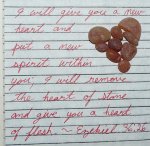 I will give you a new
heart and
put a new
spirit within
you, I will remove
the heart of stone
and give you a heart
of flesh. ~ Ezekiel 36:26